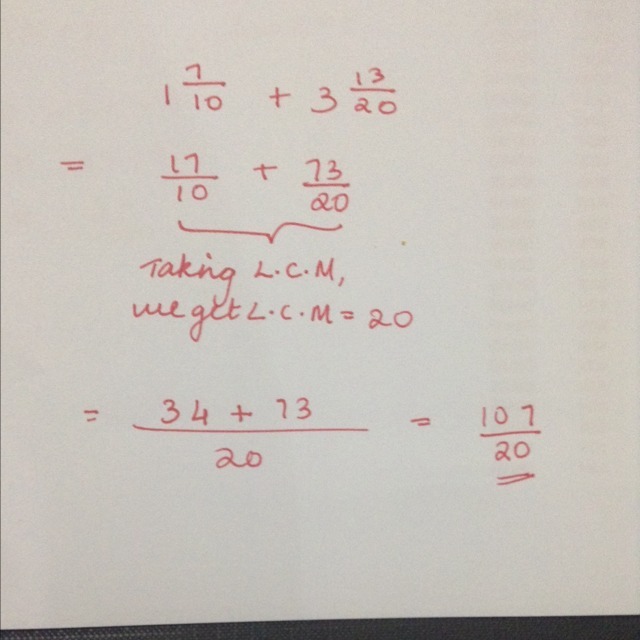 1 7/10 + 3 13/20
= 17/10 + 73/20
Taking L.C.M,
we get L.C.M = 20
= 34 + 73 / 20 = 107/20